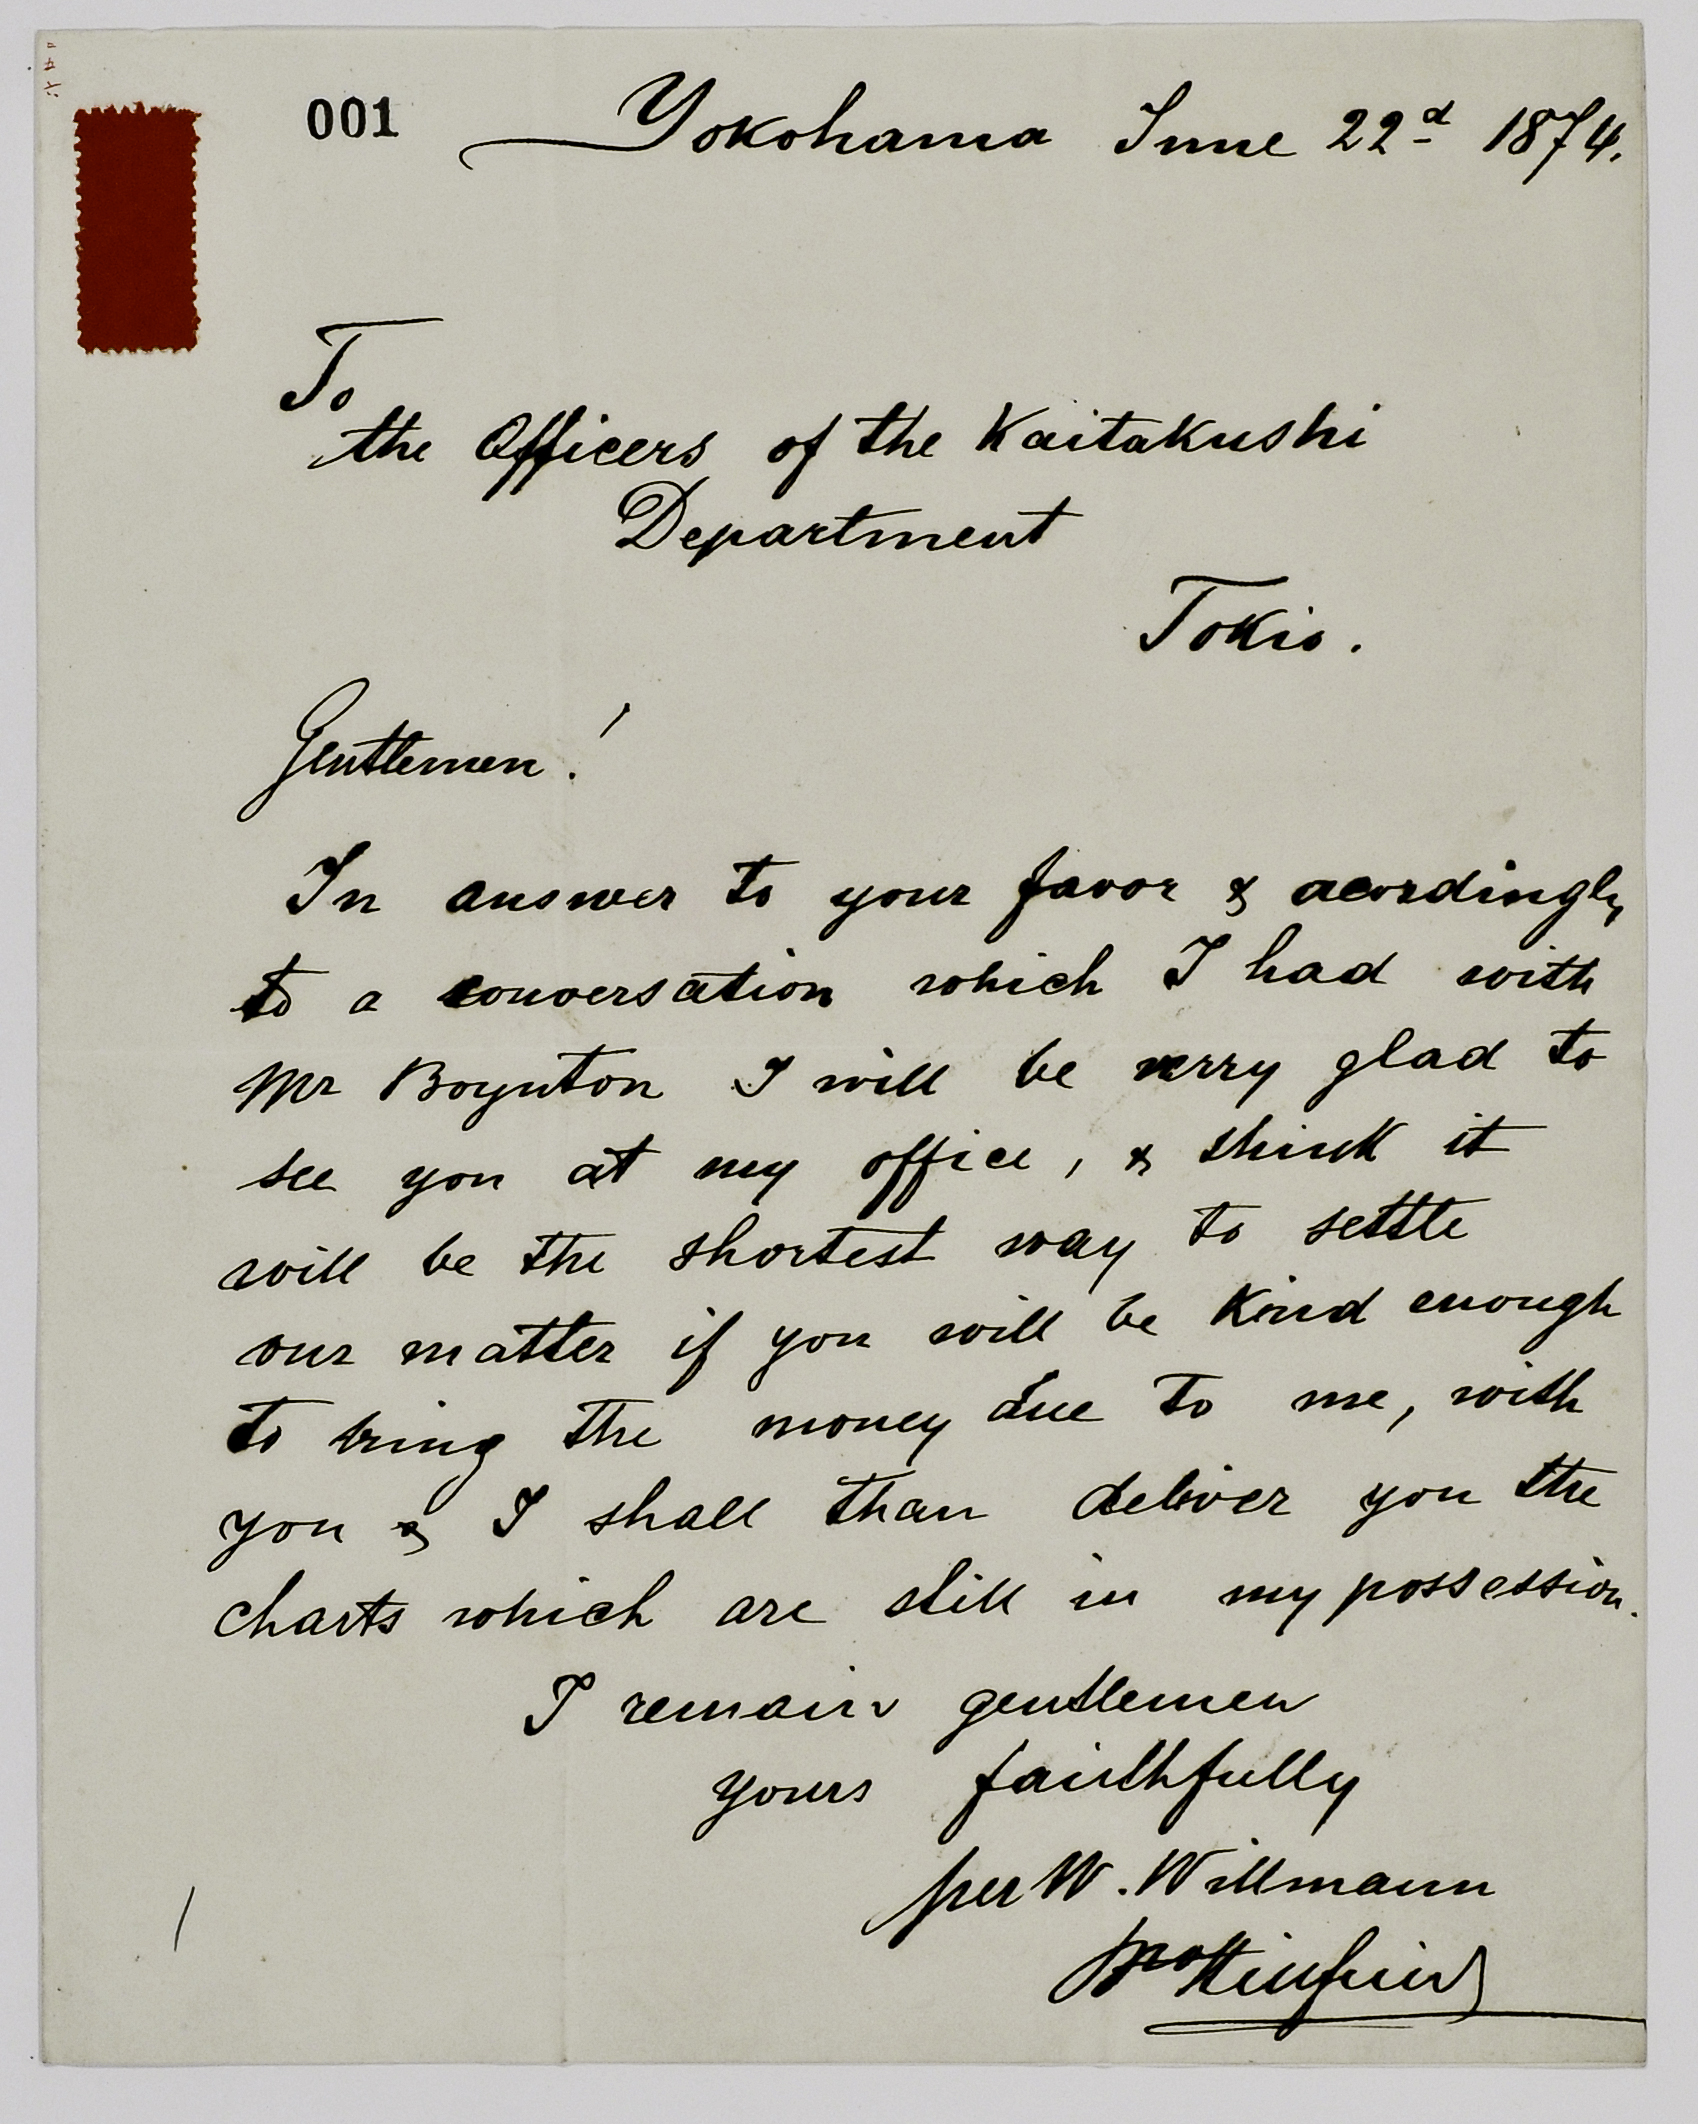 001
Yokohama June 22d 1874.
To
the Officers of the Kaitakushi
Department
Tokio.
Gentlemen!
In answer to your favor & acordingly
to a conversation which I had with
Mr Boynton I will be very glad to
see you at my office, & think it
will be the shortest way to settle
our matter if you will be kind enough
to bring the money due to me, with
you & I shall than deliver you the
charts which are still in my possession.
I remain gentlemen
yours faithfully
per W. Willmann